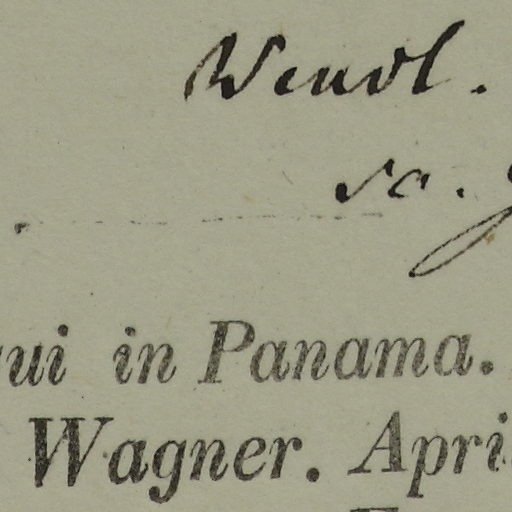 Wendl.
in Panama.
Wagner. Apri